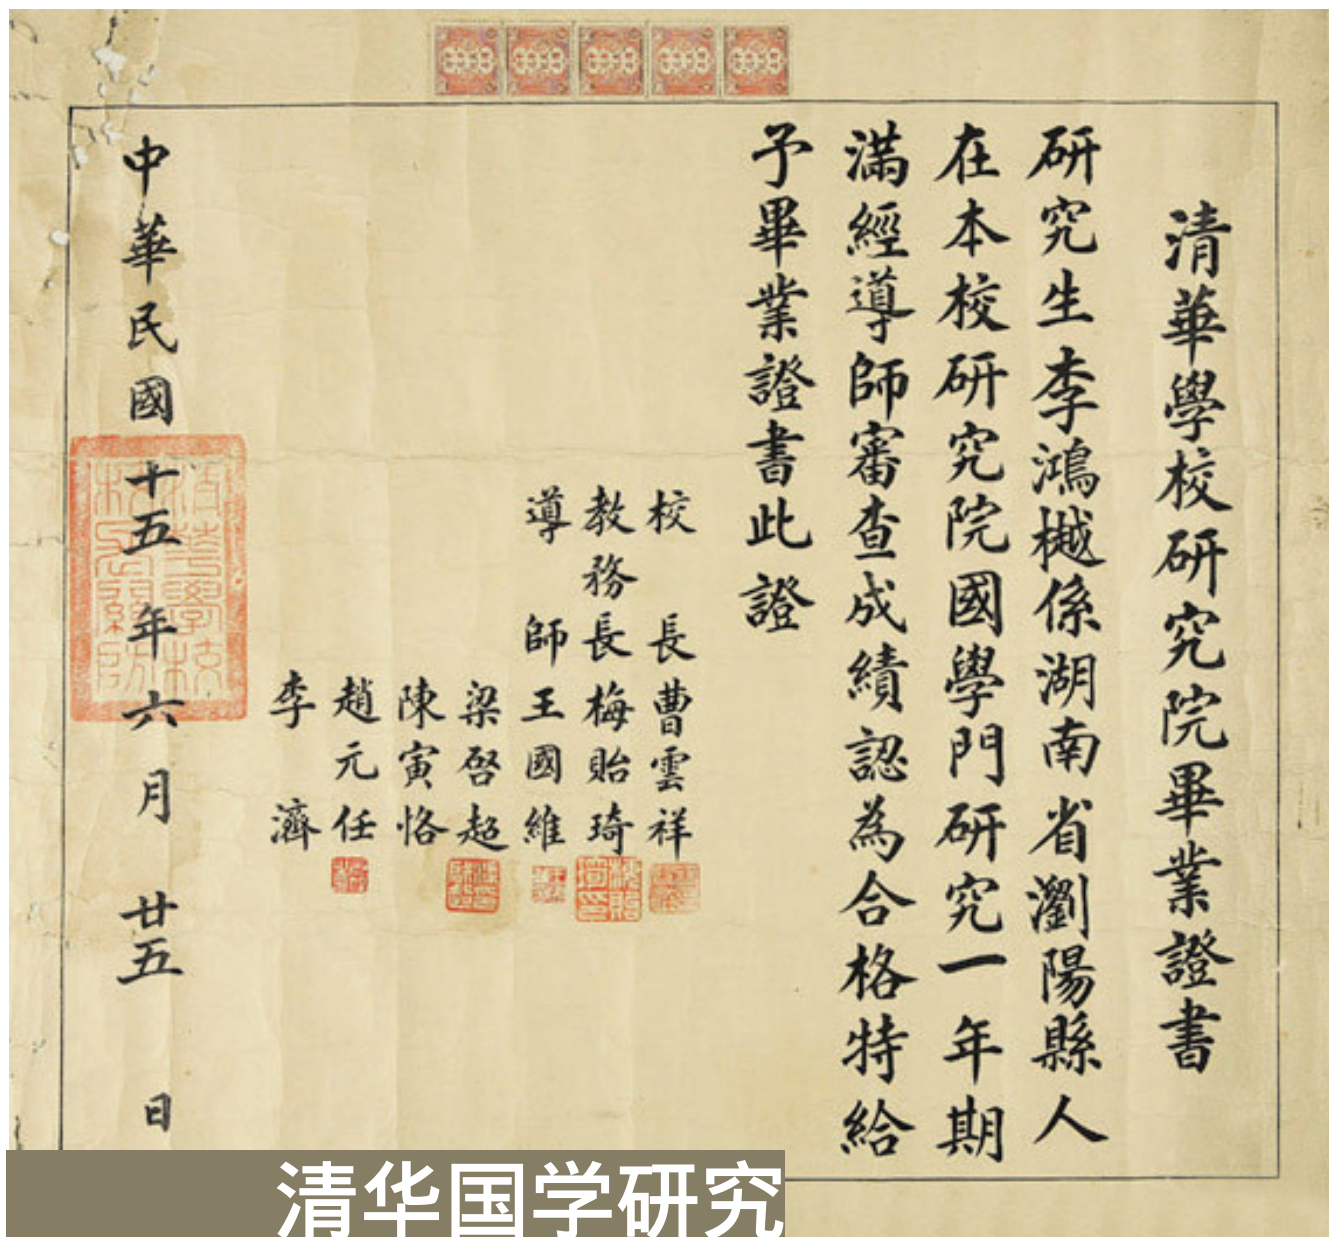 清華學校研究院畢業證書
研究生李鴻樾係湖南省瀏陽縣人
在本校研究院國學門研究一年期
滿經導師審查成績認為合格特給
予畢業證書此證
校長曹雲祥
教務長梅貽琦
導師王國維
梁啓超
陳寅恪
趙元任
李濟
中華民國十五年六月廿五日
清华国学研究